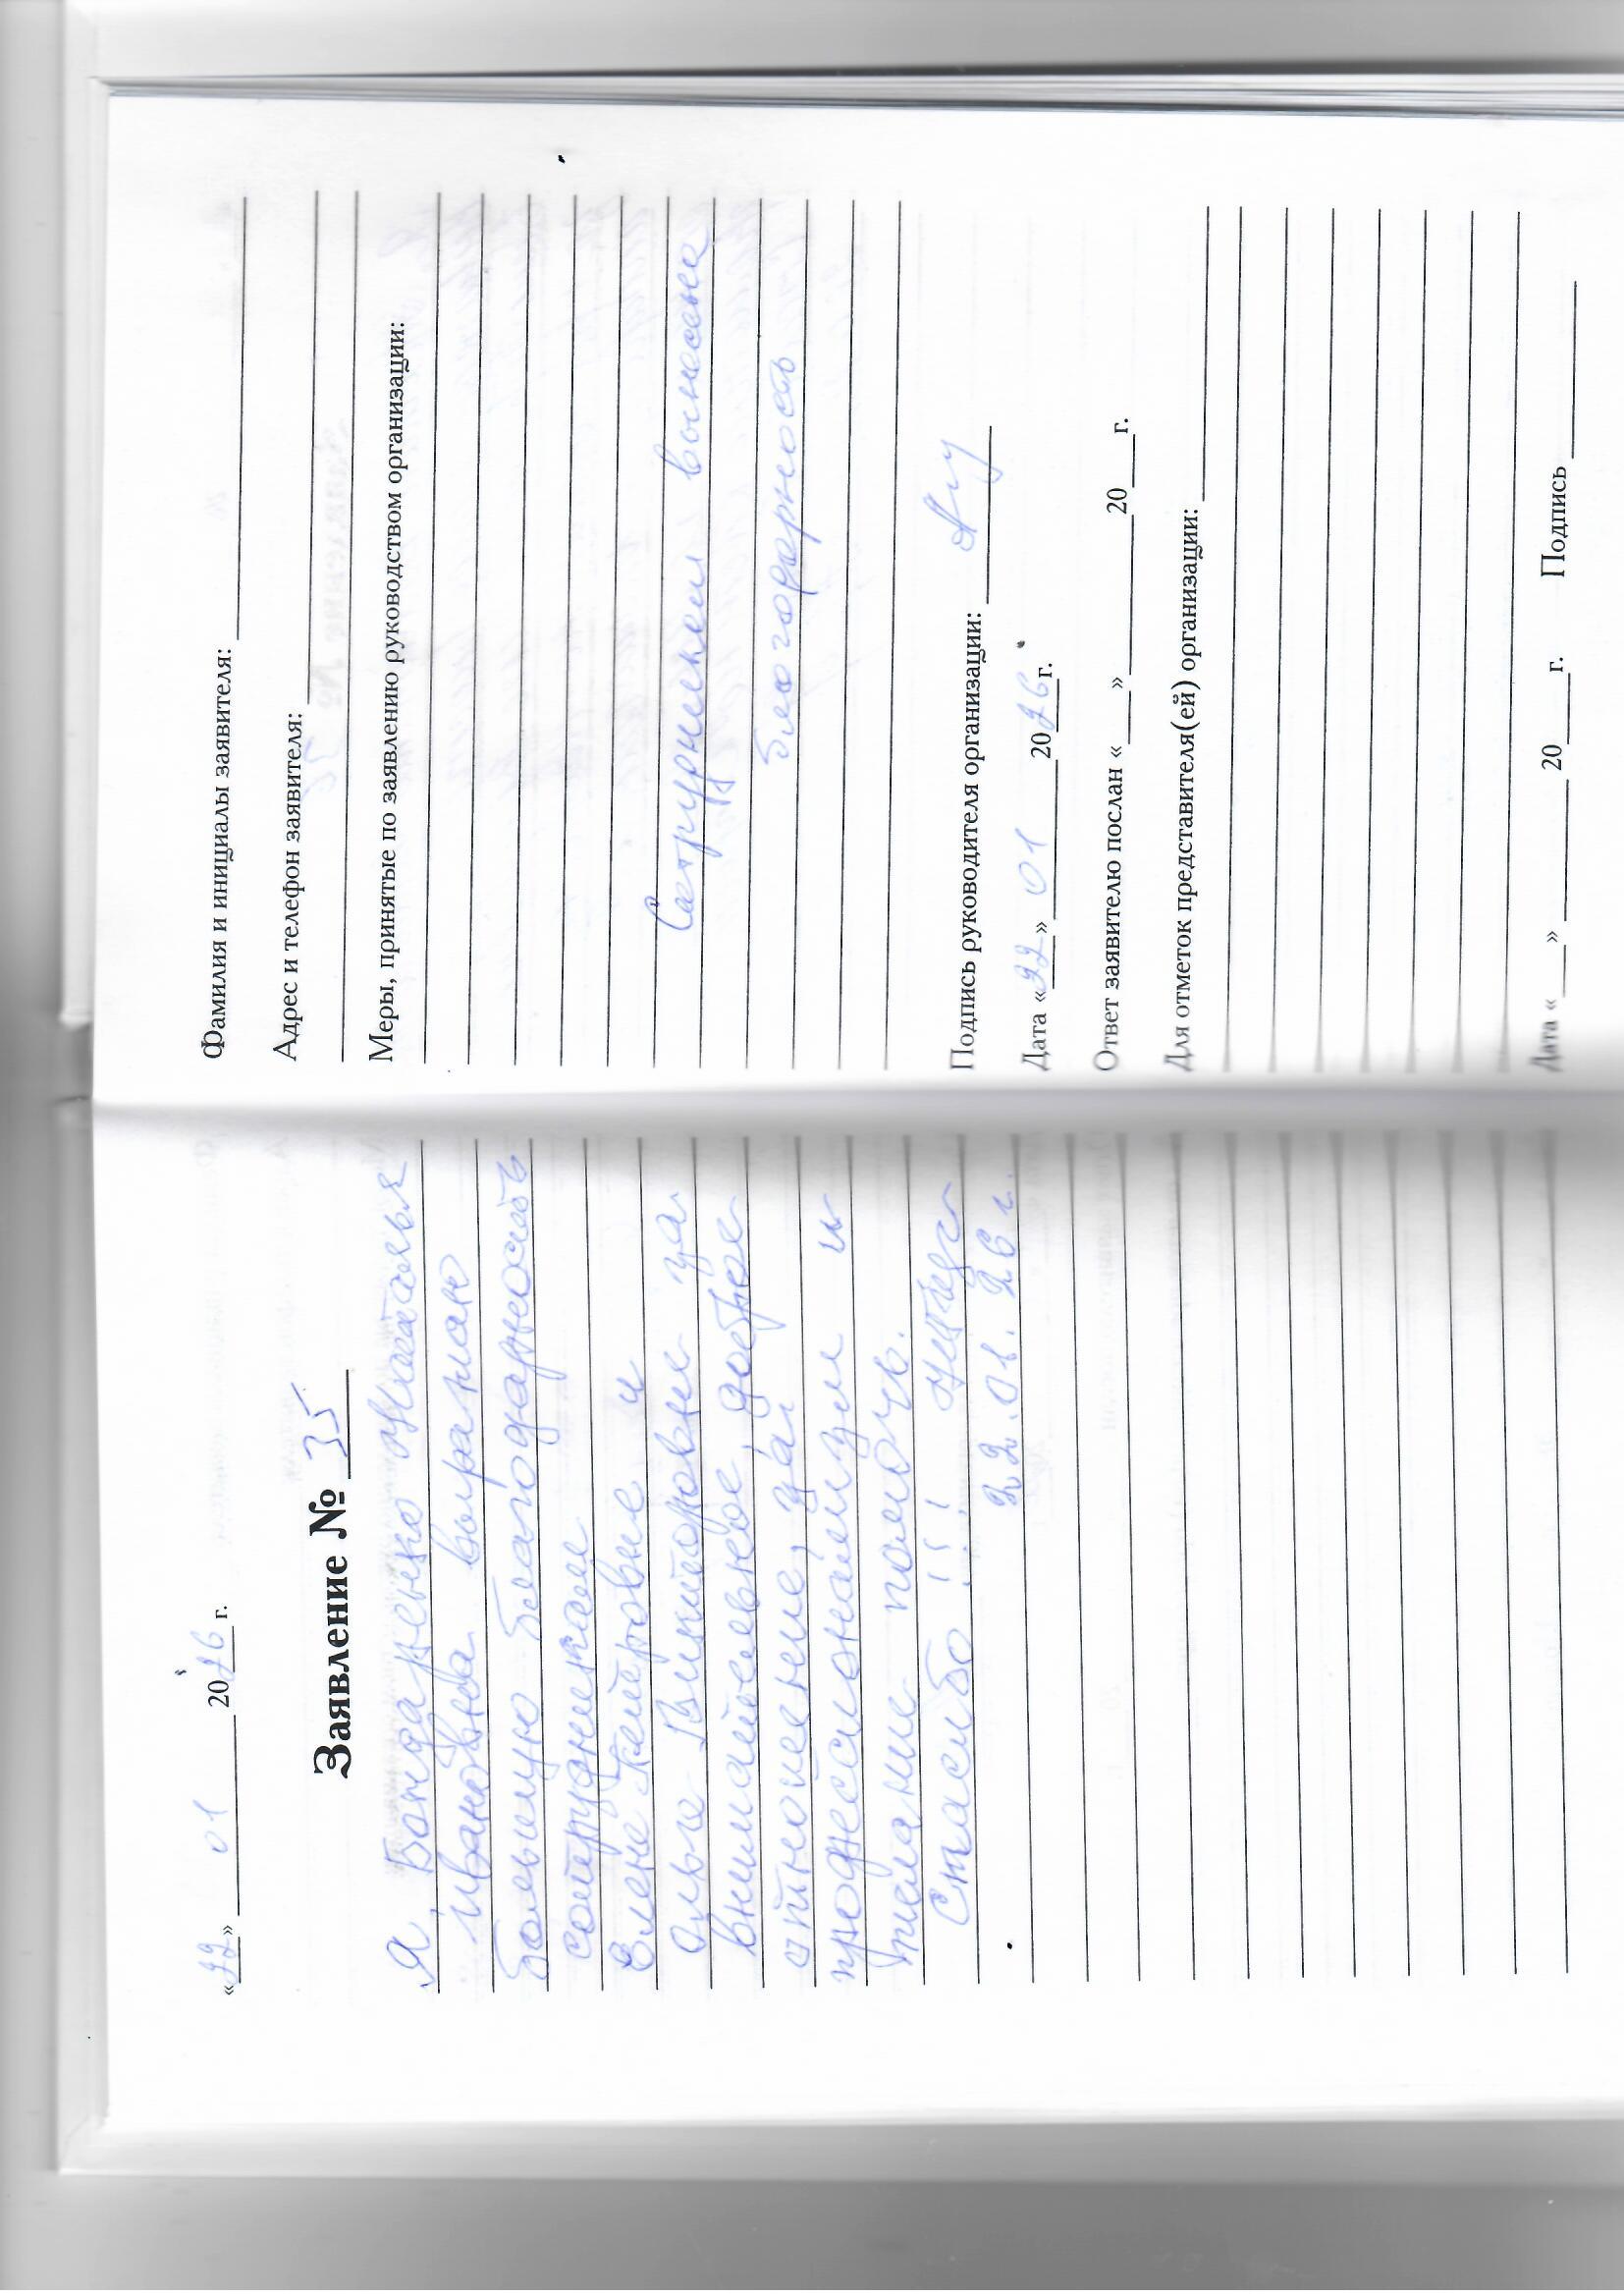 «22» 01 2026 г.
Заявление № 35
Я, Бондаренко Наталья
Ивановна выражаю
большую благодарность
сотрудникам
Елене Петровне и
Ольге Викторовне за
внимательное, доброе
отношение, за
профессионализм и
желание помочь.
Спасибо!!!
22.01.26 г.
Фамилия и инициалы заявителя:
Адрес и телефон заявителя:
Меры, принятые по заявлению руководством организации:
Сотрудникам вынесена
благодарность
Подпись руководителя организации:
Дата «22» 01 2026 г.
Ответ заявителю послан « » 20 г.
Для отметок представителя(ей) организации:
Дата « » 20 г. Подпись